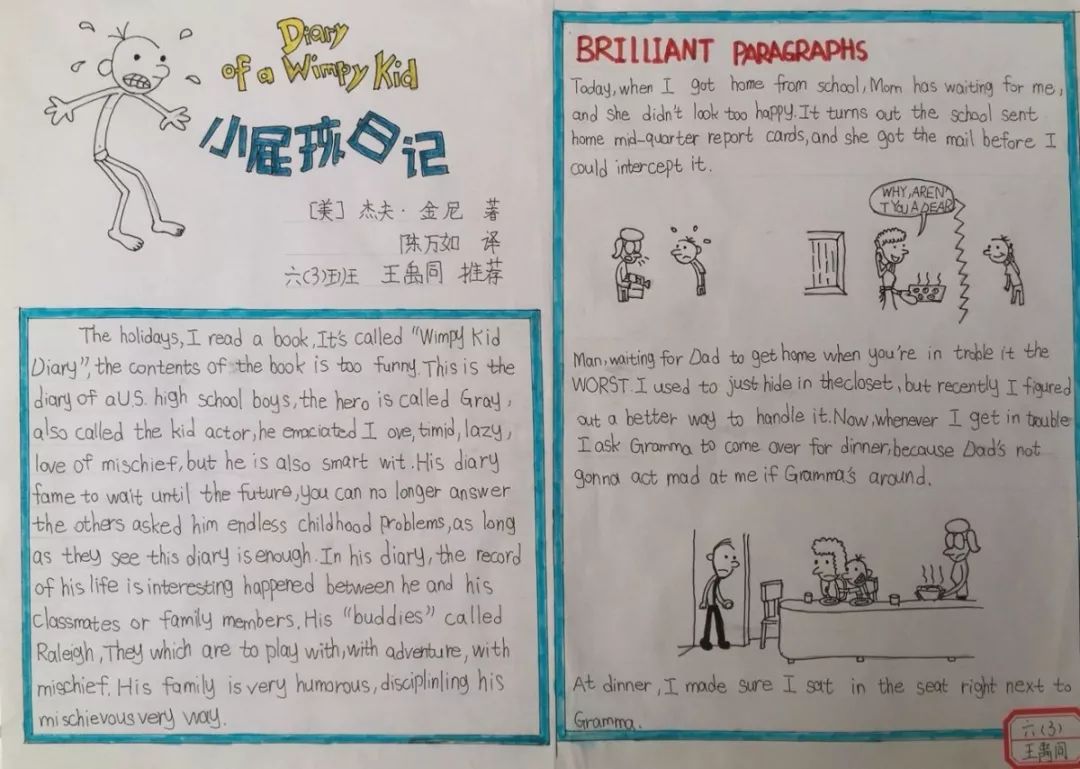 Diary
of a Wimpy Kid
小屁孩日记
[美] 杰夫·金尼 著
陈万如 译
六(3)班 王禹同 推荐
The holidays, I read a book, It's called "Wimpy Kid
Diary", the contents of the book is too funny. This is the
diary of a U.S. high school boys, the hero is called Gray,
also called the kid actor, he emaciated I ove, timid, lazy,
love of mischief, but he is also smart wit. His diary
fame to wait until the future, you can no longer answer
the others asked him endless childhood problems, as long
as they see this diary is enough. In his diary, the record
of his life is interesting happened between he and his
classmates or family members. His "buddies" called
Raleigh, They which are to play with, with adventure, with
mischief. His family is very humorous, disciplinling his
mischievous very way.
BRILLIANT PARAGRAPHS
Today, when I got home from school, Mom has waiting for me,
and she didn't look too happy. It turns out the school sent
home mid-quarter report cards, and she got the mail before I
could intercept it.
WHY, AREN'
T YOU A DEAR
Man, waiting for Dad to get home when you're in troble it the
WORST. I used to just hide in thecloset, but recently I figured
out a better way to handle it. Now, whenever I get in trouble
I ask Gramma to come over for dinner, because Dad's not
gonna act mad at me if Gramma's around.
At dinner, I made sure I sat in the seat right next to
Gramma.
六(3)
王禹同